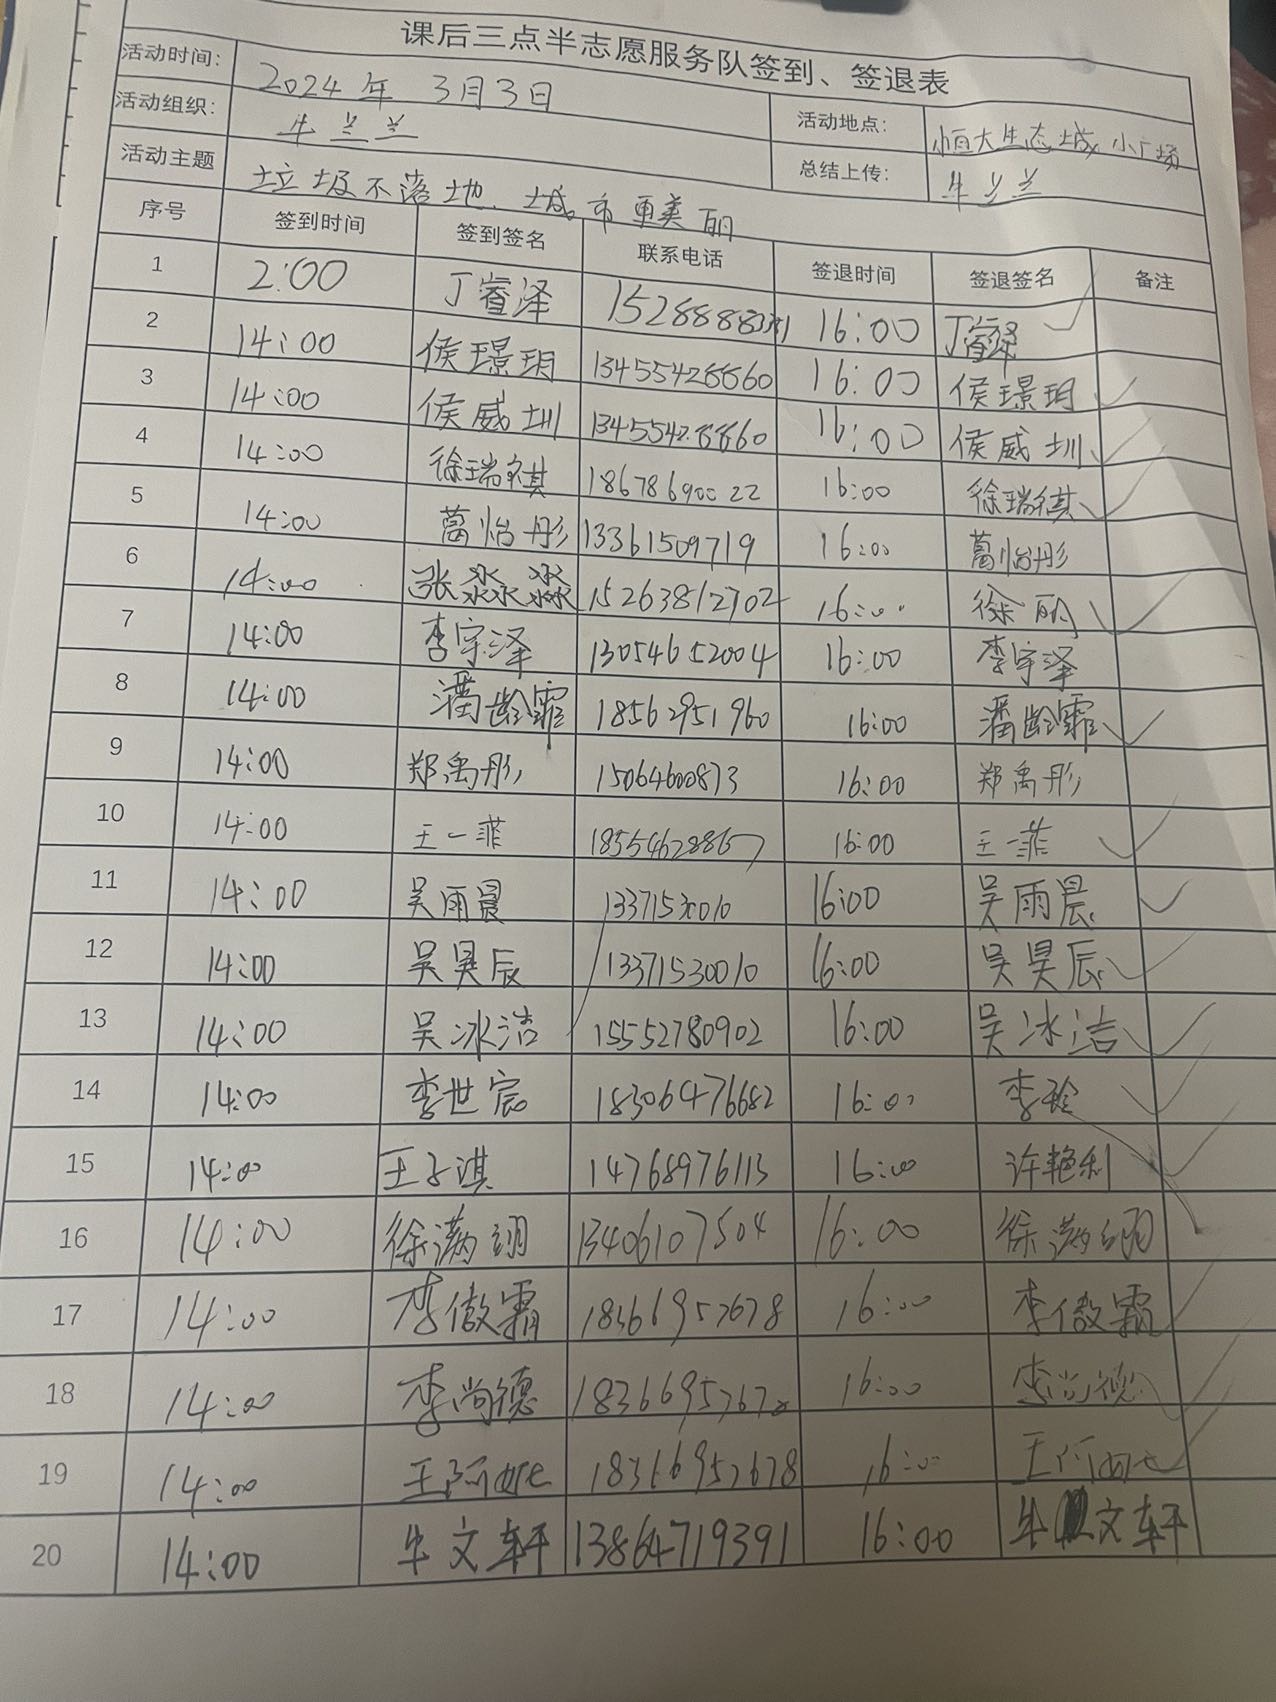 课后三点半志愿服务队签到、签退表
活动时间: 2024年3月3日 活动地点: 恒大生态城小广场
活动组织: 牛兰兰 总结上传: 牛兰兰
活动主题 垃圾不落地、城市更美丽
序号 签到时间 签到签名 联系电话 签退时间 签退签名 备注
1 2:00 丁睿泽 16:00 丁睿泽
2 14:00 侯璟玥 13455428860 16:00 侯璟玥
3 14:00 侯威圳 13455428860 16:00 侯威圳
4 14:00 徐瑞祺 18678690022 16:00 徐瑞祺
5 14:00 葛怡彤 13361509719 16:00 葛怡彤
6 14:00 张淼淼 15263812702 16:00 徐丽
7 14:00 李宇泽 13054652004 16:00 李宇泽
8 14:00 潘龄霏 18562951960 16:00 潘龄霏
9 14:00 郑禹彤 15064600873 16:00 郑禹彤
10 14:00 王一菲 16:00 王一菲
11 14:00 吴雨晨 16:00 吴雨晨
12 14:00 吴昊辰 13371530010 16:00 吴昊辰
13 14:00 吴冰洁 15552780902 16:00 吴冰洁
14 14:00 李世宸 18306476682 16:00 李玲
15 14:00 王子淇 14768976113 16:00 许艳利
16 14:00 徐满翊 13406107504 16:00 徐满翊
17 14:00 李傲霜 18366957678 16:00 李傲霜
18 14:00 李尚德 18366957678 16:00 李尚德
19 14:00 王阿妮 18366957678 16:00 王阿妮
20 14:00 牛文轩 13864719391 16:00 牛文轩